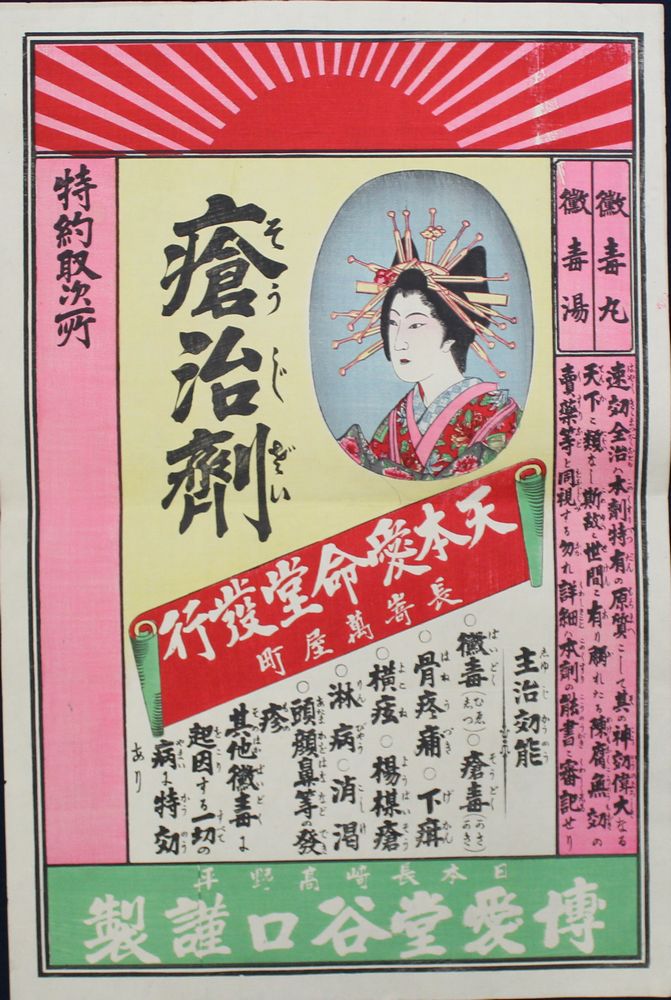 黴毒丸
黴毒湯
速効全治ハ本剤特有の原質にして其の神効偉大なる
天下に類なし斯故に世間に有り觸れたる陳腐無効の
賣藥等と同視する勿れ詳細ハ本剤の能書に審記せり
瘡治劑
そうじざい
天本愛命堂發行
長嵜萬屋町
主治効能
しゆじかうのう
○黴毒(ひゑしつ)○瘡毒(かさ)
○骨疼痛○下疳
○横痃○楊楳瘡
○淋病○消渇
○頭顔鼻等の發
疹
其他黴毒に
起因する一切の
病に特効
あり
特約取次所
日本長崎高野平
博愛堂谷口謹製